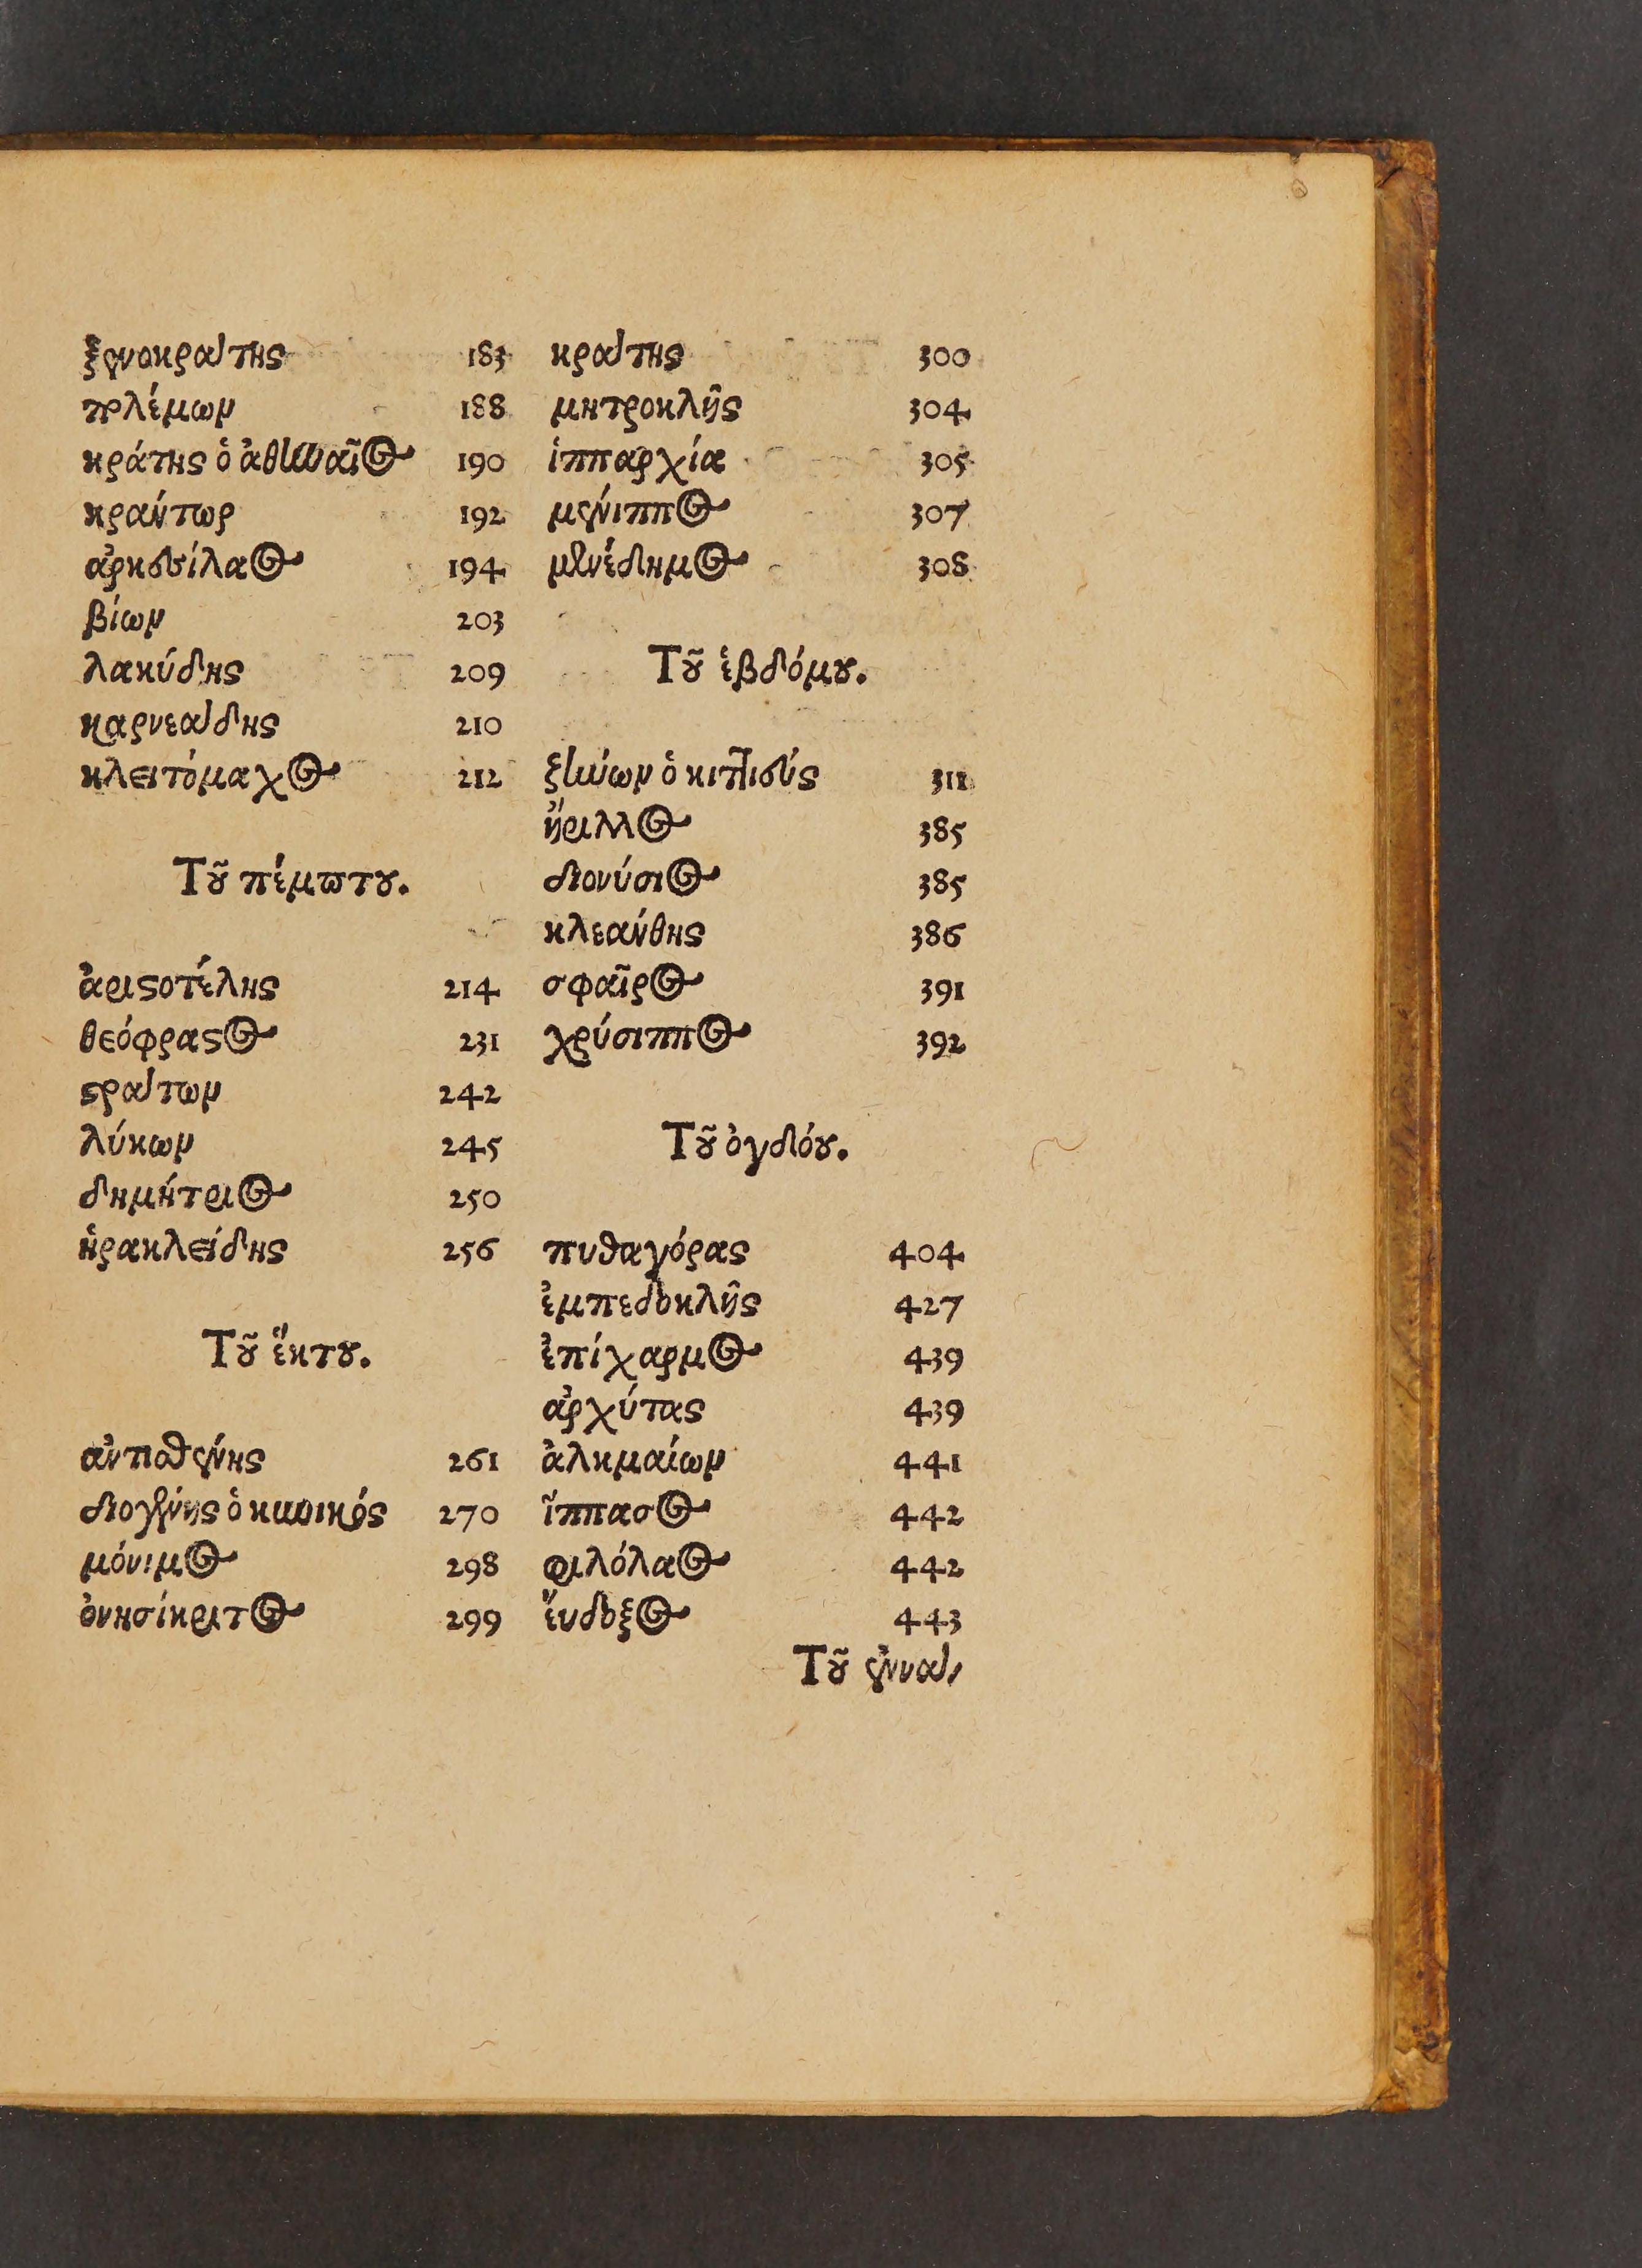 ξενοκράτης 183
πολέμων 188
κράτης ὁ ἀθηναῖος 190
κράντωρ 192
ἀρκεσίλαος 194
βίων 203
λακύδης 209
καρνεάδης 210
κλειτόμαχος 212
Τοῦ πέμπτου.
ἀριστοτέλης 214
θεόφραστος 231
στράτων 242
λύκων 245
δημήτριος 250
ἡρακλείδης 256
Τοῦ ἕκτου.
ἀντισθένης 261
διογένης ὁ κυνικός 270
μόνιμος 298
ὀνησίκριτος 299
κράτης 300
μητροκλῆς 304
ἱππαρχία 305
μένιππος 307
μενέδημος 308
Τοῦ ἑβδόμου.
ξήνων ὁ κιττιεύς 311
ἤριλλος 385
διονύσιος 385
κλεάνθης 386
σφαῖρος 391
χρύσιππος 392
Τοῦ ὀγδόου.
πυθαγόρας 404
ἐμπεδοκλῆς 427
ἐπίχαρμος 439
ἀρχύτας 439
ἀλκμαίων 441
ἵππασος 442
φιλόλαος 442
ἔυδοξος 443
Τοῦ ἐννά,